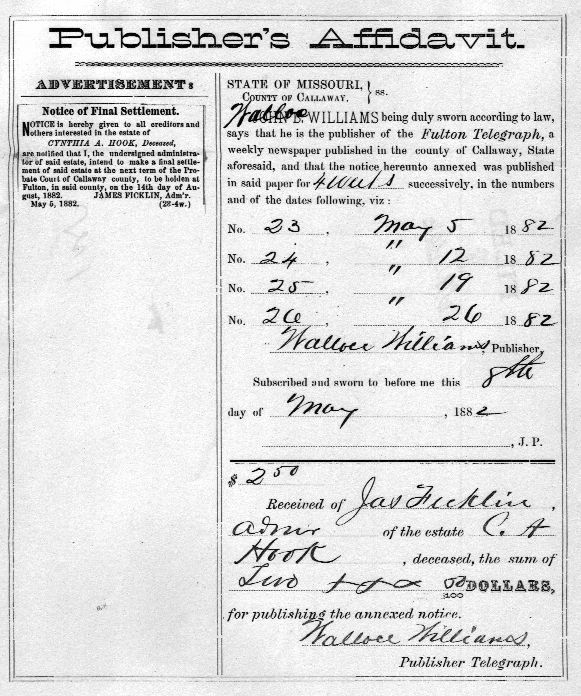 Publisher's Affidavit.
ADVERTISEMENT:
Notice of Final Settlement.
NOTICE is hereby given to all creditors and
others interested in the estate of
CYNTHIA A. HOOK, Deceased,
are notified that I, the undersigned administra-
tor of said estate, intend to make a final settle-
ment of said estate at the next term of the Pro-
bate Court of Callaway county, to be holden at
Fulton, in said county, on the 14th day of Au-
gust, 1882. JAMES FICKLIN, Adm'r.
May 5, 1882. (23-4w.)
STATE OF MISSOURI,
COUNTY OF CALLAWAY. } ss.
Wallace WILLIAMS being duly sworn according to law,
says that he is the publisher of the Fulton Telegraph, a
weekly newspaper published in the county of Callaway, State
aforesaid, and that the notice hereunto annexed was published
in said paper for 4 weeks successively, in the numbers
and of the dates following, viz:
No. 23, May 5 1882
No. 24, " 12 1882
No. 25, " 19 1882
No. 26, " 26 1882
Wallace Williams, Publisher,
Subscribed and sworn to before me this 8th
day of May, 1882
, J. P.
$ 2 50
Received of Jas Ficklin,
admr of the estate C. A
Hook, deceased, the sum of
Two 50/100 DOLLARS,
for publishing the annexed notice.
Wallace Williams,
Publisher Telegraph.